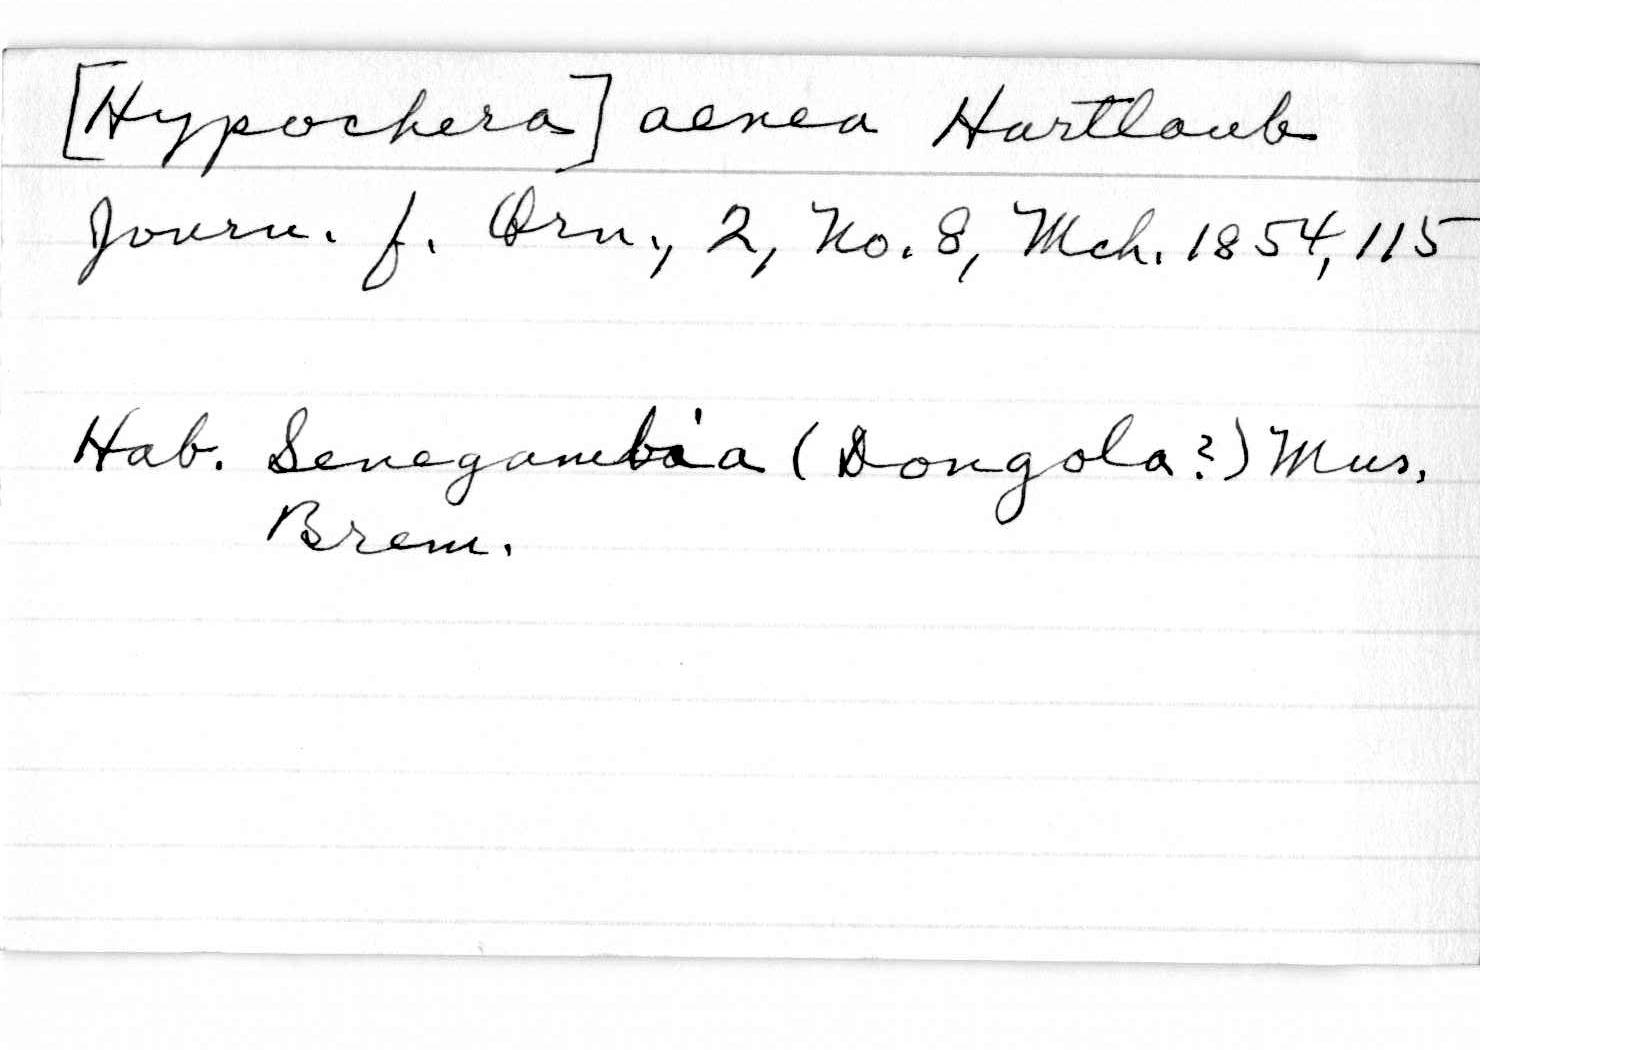 [Hypochera] aenea Hartlaub
Journ. f. Orn., 2, No. 8, Mch. 1854, 115
Hab. Senegambia (Dongola?) Mus.
Brem.